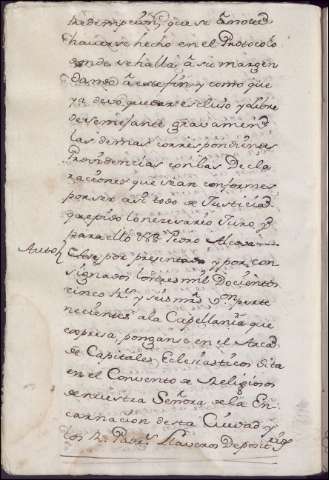 redempcion, que se anoted
haverse hecho en el Protocolo
donde se halla, a su margen
dando a este fin, y como que
ya devo quedar escluso y libre
de semejante gravamend
las demas correspondientes
Providencias con las Decla
raciones que sean conformes
por ser asi todo de Justiciad
que pido lo necesario Juro, y
para ello Vd Pedro Alcar
Auto Ase por presentado y por con
signados los tres mil Docientos
cinco Rs y seis mrs Vn perte
necientes a la Capellania que
expresa, ponganse en el Arca
de Capitales Eclesiasticos sita
en el Convento de Religiosos
de nuestra Señora de la En
carnacion desta Ciudad y
los Llaveros Deposit